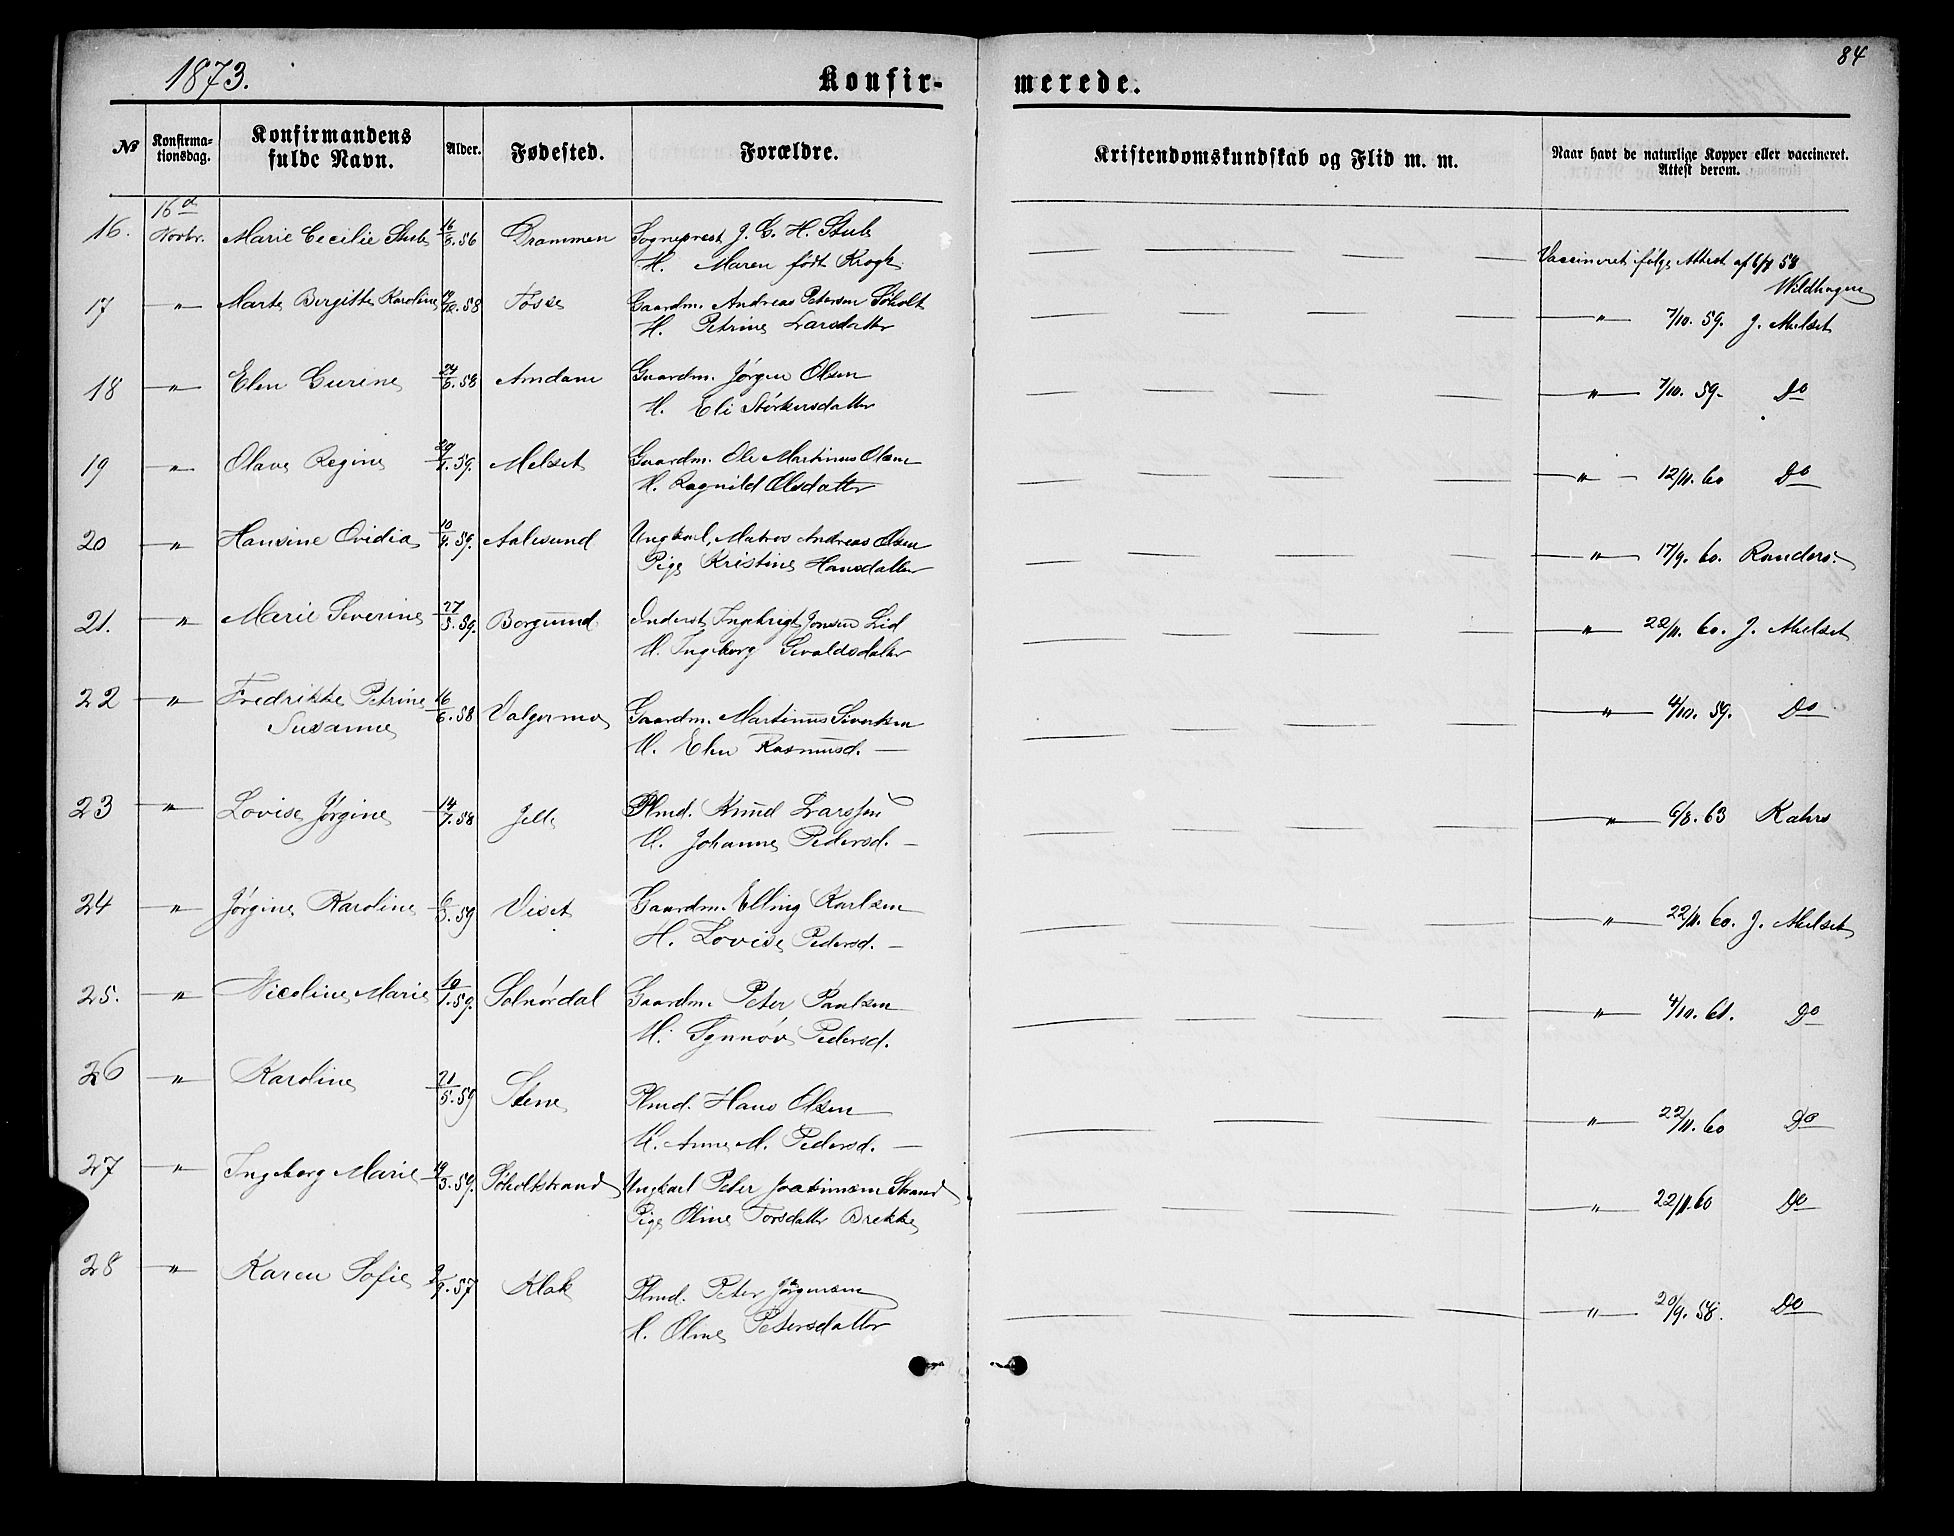 84
1873.
Konfir- merede.
No
Konfirma-
tionsdag.
Konfirmandens
fulde Navn.
Alder.
Fødested.
Forældre.
Kristendomskundskab og Flid m. m.
Naar havt de naturlige Kopper eller vaccineret.
Attest derom.
16. 16d Novbr. Marie Cecilie Stub 16/6.56 Drammen Sogneprest J. G. H. Stub
H. Maren født Krogh.
Vaccineret ifølge Attest af 6/8 58
Wildhagen
17 " Marte Bergitte Karoline 58 Tosse Gaardm. Andreas Petersen Søholt
H. Petrine Larsdatter
" 7/10. 59. J. Melset
18 " Elen Gurine 24/6.58 Amdam Gaardm. Jørgen Olsen
H. Eli Størkersdatter
" 7/10. 59- Do
19 " Olave Regine 59. Melset Gaardm. Ole Martinus Olsen
H. Ragnild Olsdatter
" 12/11. 60 Do
20 " Hansine Ovidia 10/4.59. Aalesund Ungkarl, Matros Andreas Olsen
Pige Kristine Hansdatter
" 17/9. 60. Randers.
21. " Marie Severine 27/5.59. Borgund Inderst Ingebrigt Jonsen Lid
H. Ingeborg Sivaldsdatter
" 22/11. 60. J. Melset
22 " Fredrikke Petrine 16/6.58 Valgermo Gaardm. Martinus Sivertsen
Susanne
H. Elen Rasmusd. —
" 4/10. 59. Do
23 " Lovise Jørgine 14/7.58 Jelle Plmd. Knud Larssen
H. Johanne Pedersd. —
" 6/8. 63 Kahrs
24 " Jørgine Karoline 6/3.59 Viset Gaardm. Elling Karlsen
H. Lovise Pedersd. —
" 22/11. 60. J. Melset
25. " Nicoline Marie 10/1.59. Solnørdal Gaardm. Peter Paulsen
H. Synnøve Pedersd.
" 4/10. 61. Do
26 " Karoline 21/5.59 Stene Plmd. Hans Olsen
H. Anne M. Pedersd. —
" 22/11. 60 Do
27 " Ingeborg Marie 19/3.59. Søholtstrand Ungkarl Peter Joakimsen Strand
Pige Oline Torsdatter Brekke
" 22/11.60 Do
28 " Karen Sofie 57 Klok Plmd. Peter Jørgensen
H. Oline Petersdatter
" 20/9. 58. Do